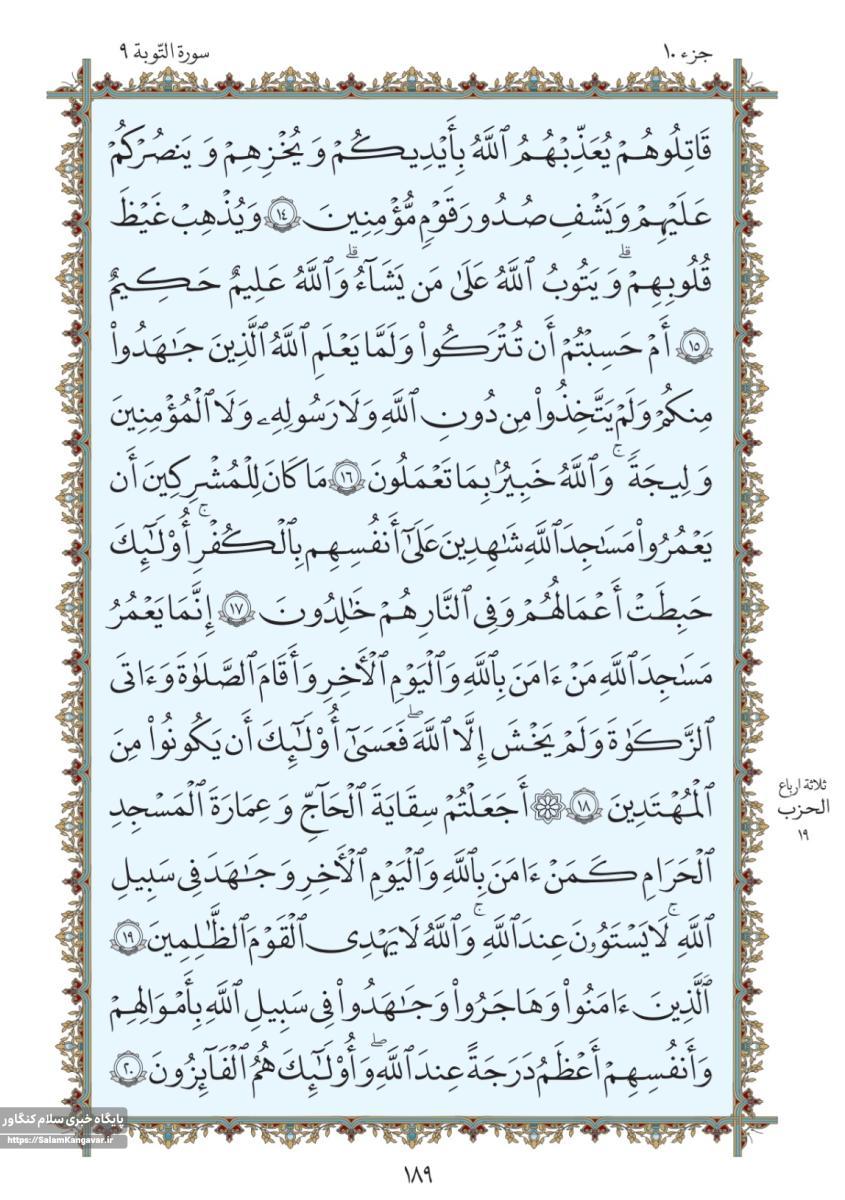 جزء ١٠
سورة التّوبة ٩
قَاتِلُوهُمْ يُعَذِّبْهُمُ ٱللَّهُ بِأَيْدِيكُمْ وَيُخْزِهِمْ وَيَنصُرْكُمْ
عَلَيْهِمْ وَيَشْفِ صُدُورَ قَوْمٍ مُّؤْمِنِينَ ١٤ وَيُذْهِبْ غَيْظَ
قُلُوبِهِمْ ۗ وَيَتُوبُ ٱللَّهُ عَلَىٰ مَن يَشَآءُ ۗ وَٱللَّهُ عَلِيمٌ حَكِيمٌ
١٥ أَمْ حَسِبْتُمْ أَن تُتْرَكُوا۟ وَلَمَّا يَعْلَمِ ٱللَّهُ ٱلَّذِينَ جَـٰهَدُوا۟
مِنكُمْ وَلَمْ يَتَّخِذُوا۟ مِن دُونِ ٱللَّهِ وَلَا رَسُولِهِۦ وَلَا ٱلْمُؤْمِنِينَ
وَلِيجَةً ۚ وَٱللَّهُ خَبِيرٌۢ بِمَا تَعْمَلُونَ ١٦ مَا كَانَ لِلْمُشْرِكِينَ أَن
يَعْمُرُوا۟ مَسَـٰجِدَ ٱللَّهِ شَـٰهِدِينَ عَلَىٰٓ أَنفُسِهِم بِٱلْكُفْرِ ۚ أُو۟لَـٰٓئِكَ
حَبِطَتْ أَعْمَالُهُمْ وَفِى ٱلنَّارِ هُمْ خَـٰلِدُونَ ١٧ إِنَّمَا يَعْمُرُ
مَسَـٰجِدَ ٱللَّهِ مَنْ ءَامَنَ بِٱللَّهِ وَٱلْيَوْمِ ٱلْـَٔاخِرِ وَأَقَامَ ٱلصَّلَوٰةَ وَءَاتَى
ٱلزَّكَوٰةَ وَلَمْ يَخْشَ إِلَّا ٱللَّهَ ۖ فَعَسَىٰٓ أُو۟لَـٰٓئِكَ أَن يَكُونُوا۟ مِنَ
ٱلْمُهْتَدِينَ ١٨ ۞ أَجَعَلْتُمْ سِقَايَةَ ٱلْحَآجِّ وَعِمَارَةَ ٱلْمَسْجِدِ
ٱلْحَرَامِ كَمَنْ ءَامَنَ بِٱللَّهِ وَٱلْيَوْمِ ٱلْـَٔاخِرِ وَجَـٰهَدَ فِى سَبِيلِ
ٱللَّهِ ۚ لَا يَسْتَوُۥنَ عِندَ ٱللَّهِ ۗ وَٱللَّهُ لَا يَهْدِى ٱلْقَوْمَ ٱلظَّـٰلِمِينَ ١٩
ٱلَّذِينَ ءَامَنُوا۟ وَهَاجَرُوا۟ وَجَـٰهَدُوا۟ فِى سَبِيلِ ٱللَّهِ بِأَمْوَٰلِهِمْ
وَأَنفُسِهِمْ أَعْظَمُ دَرَجَةً عِندَ ٱللَّهِ ۖ وَأُو۟لَـٰٓئِكَ هُمُ ٱلْفَآئِزُونَ ٢٠
ثلاثة ارباع
الحزب
١٩
پایگاه خبری سلام کنگاور
https://SalamKangavar.ir
١٨٩